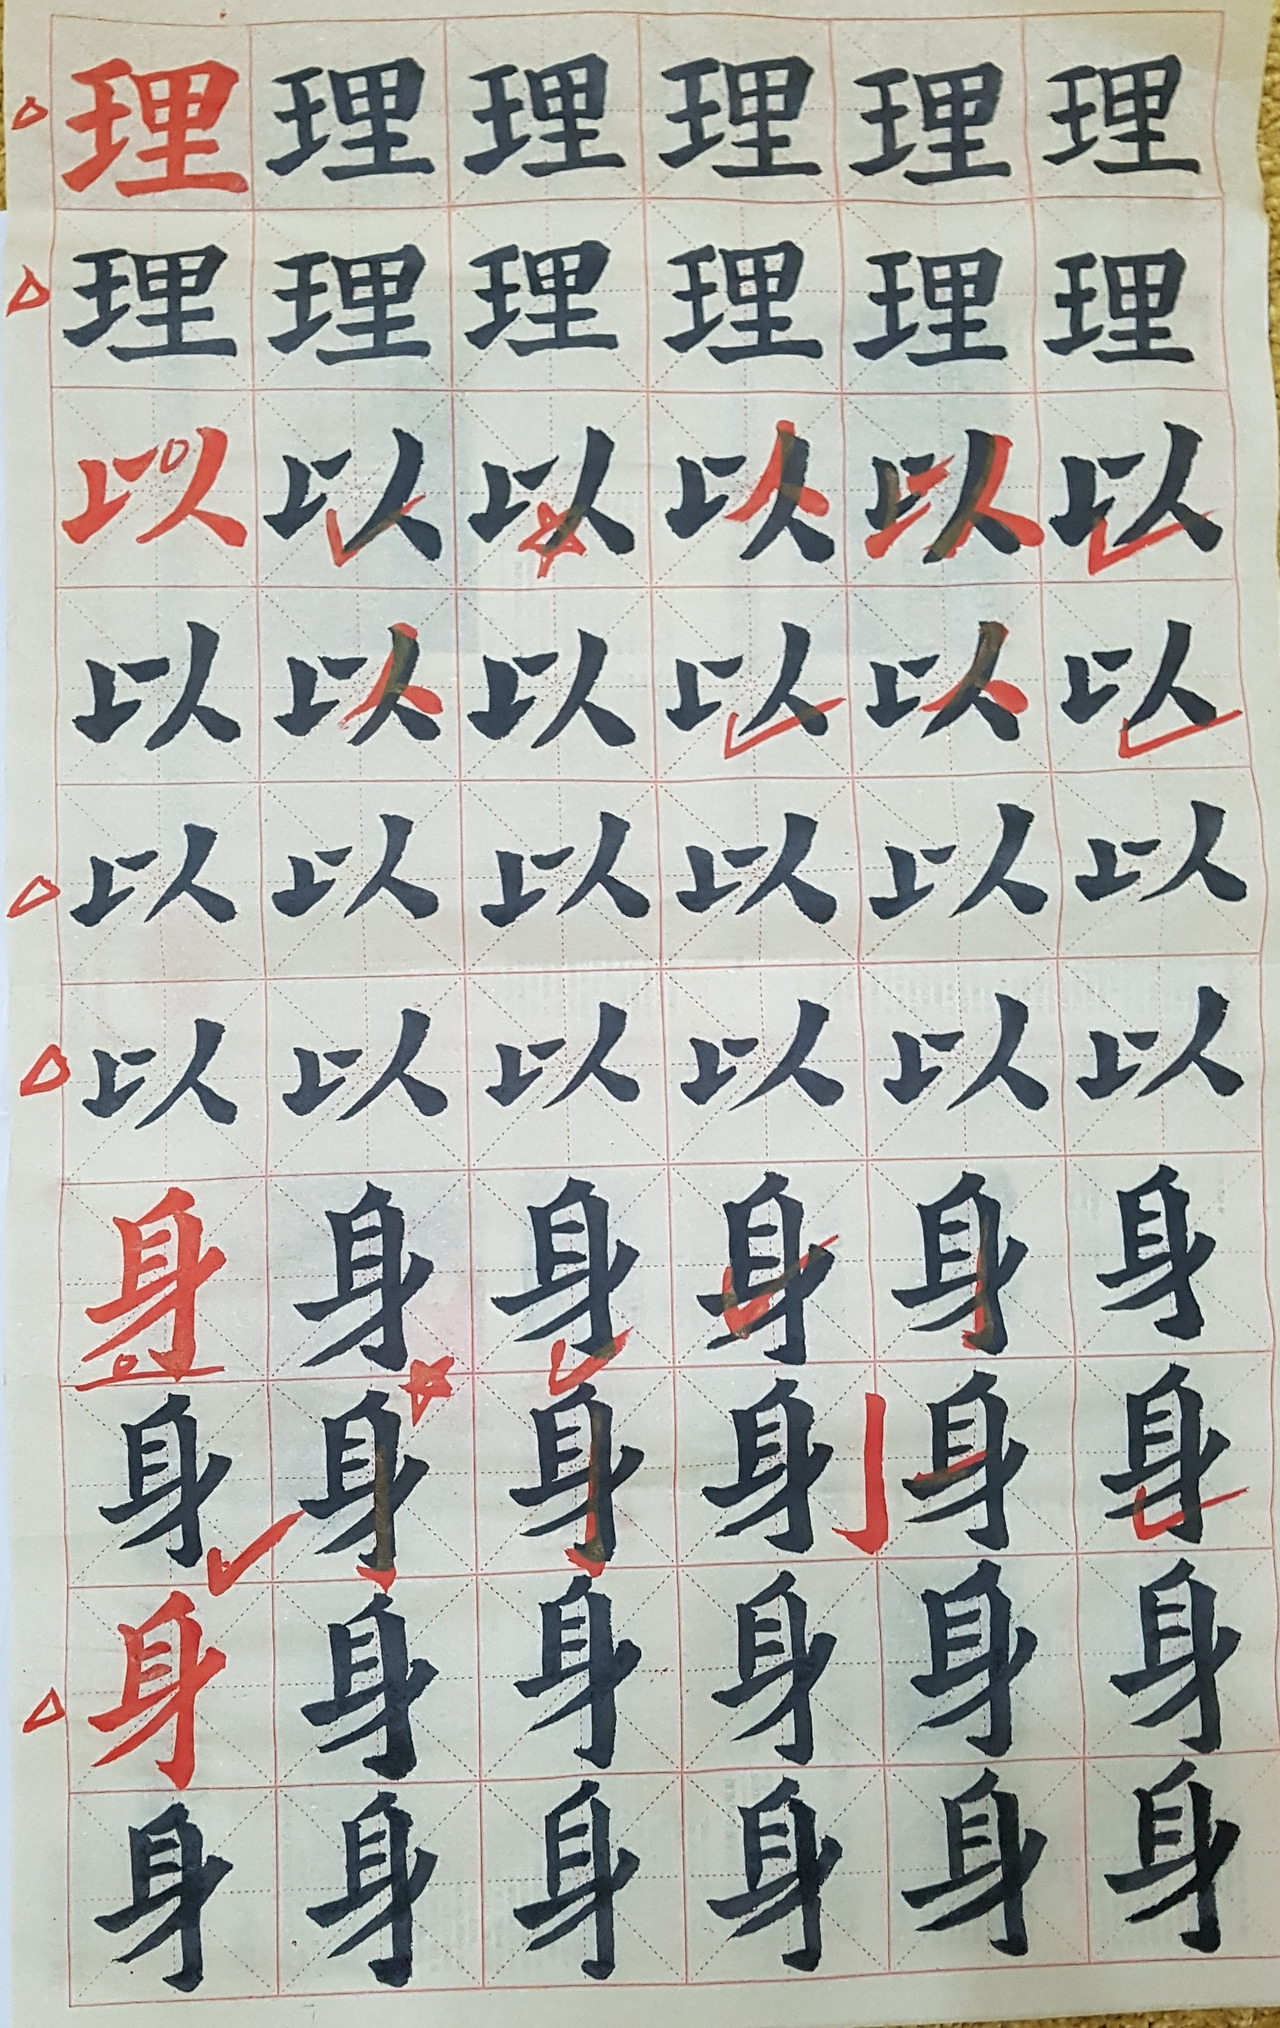 理理理理理理
理理理理理理
以以以以以以
以以以以以以
以以以以以以
以以以以以以
身身身身身身
身身身身身身
身身身身身身
身身身身身身